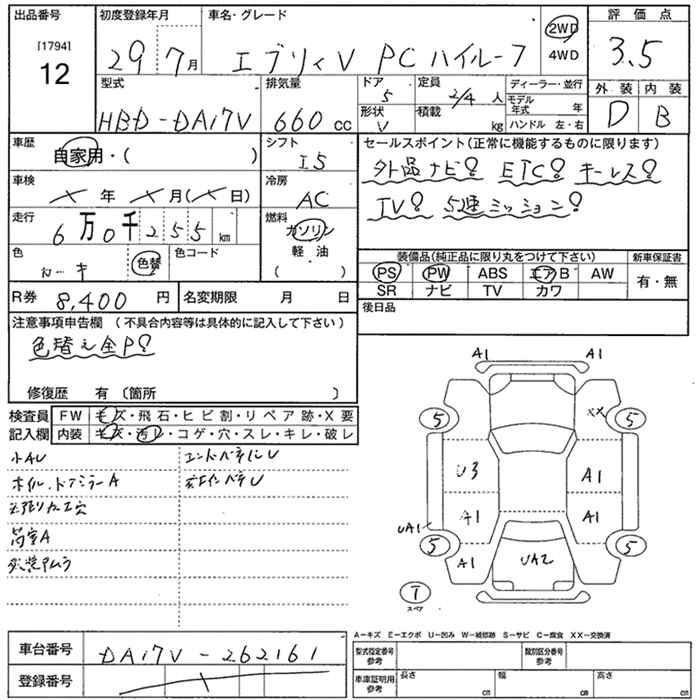 出品番号 初度登録年月 車名・グレード 2WD 評価点
[1794] 12 29年7月 エブリィV PC ハイルーフ 4WD 3.5
型式 排気量 ドア 定員 ディーラー・並行 外装 内装
HBD-DA17V 660cc 5 2/4人 モデル年式 年 D B
形状 V 積載 kg ハンドル 左・右
車歴 自家用・( ) シフト I5 セールスポイント(正常に機能するものに限ります)
外品ナビ! ETC! キーレス!
TV! 5速ミッション!
車検 ×年×月(×日) 冷房 AC
走行 6万0千255km 燃料 ガソリン
軽油
( )
色 色替 色コード
装備品(純正品に限り丸をつけて下さい) 新車保証書
PS PW ABS エアB AW 有・無
SR ナビ TV カワ
R券 8,400円 名変期限 月 日 後日品
注意事項申告欄 (不具合内容等は具体的に記入して下さい)
色替え全P!
修復歴 有 (箇所 )
検査員 FW キズ・飛石・ヒビ割・リペア跡・X要
記入欄 内装 キズ・汚レ・コゲ・穴・スレ・キレ・破レ
小AU
ホイル、ドアミラーA
荷室A
A1 A1
5 XX 5
U3 A1
A1 A1
UA1
5 5
A1 UA2
T
スペア
A-キズ E-エクボ U-凹み W-補修跡 S-サビ C-腐食 XX-交換済
車台番号 DA17V-262161 型式指定番号 参考 類別区分番号 参考
登録番号 車庫証明用 参考 長さ cm 幅 cm 高さ cm